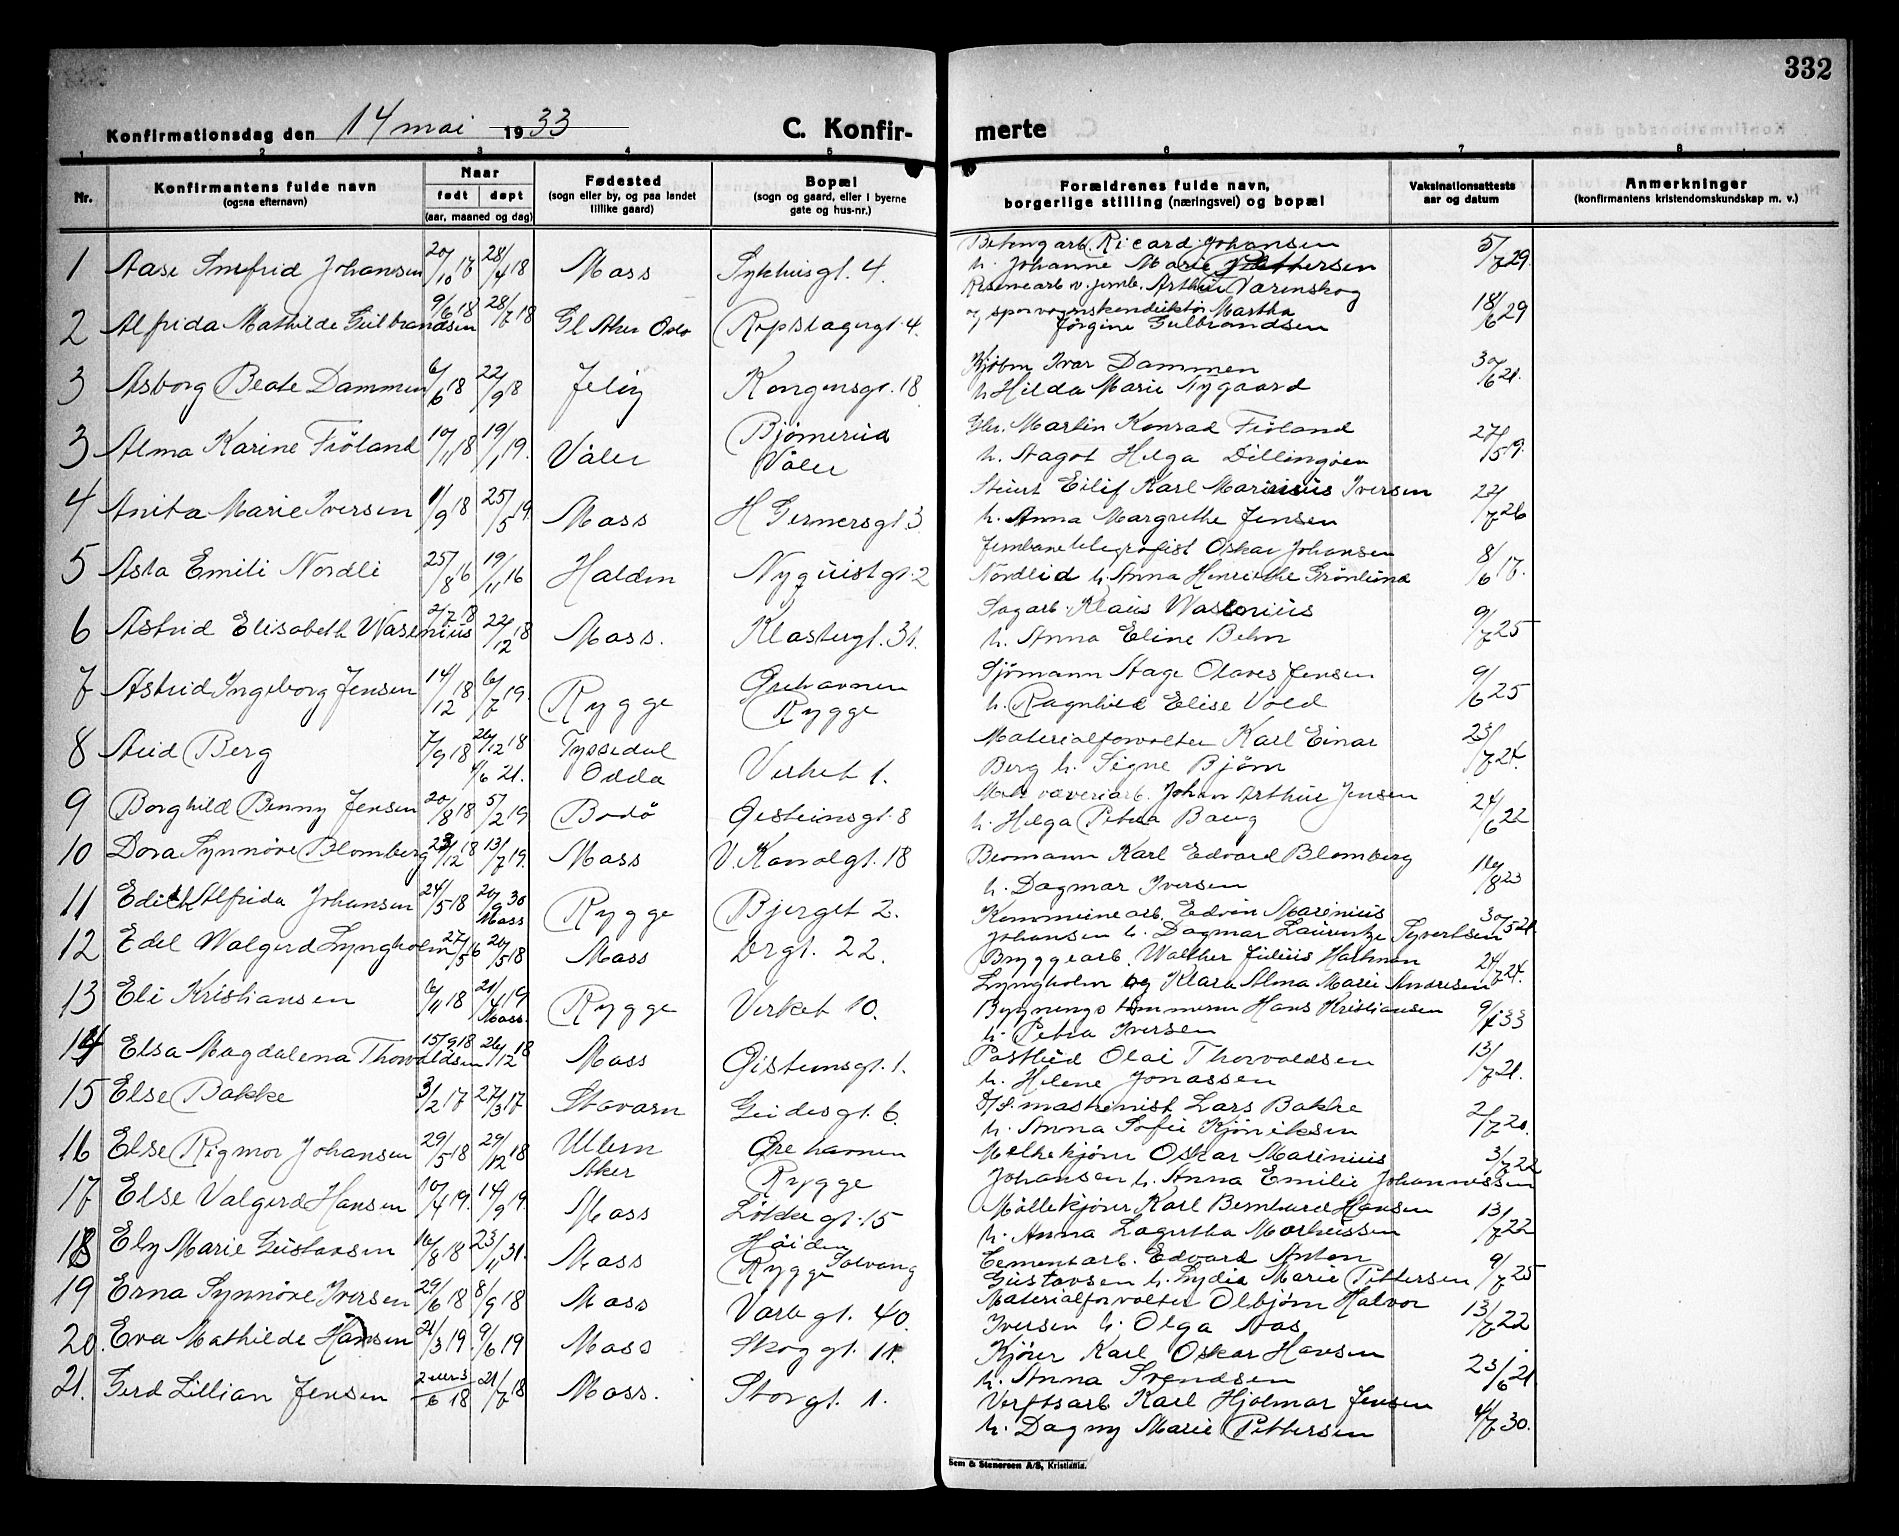 332
Konfirmationsdag den 14 mai 1933 C. Konfirmerte
1 2 3 4 5 6 7 8
Nr. Konfirmantens fulde navn (ogsaa efternavn) Naar født døpt (aar, maaned og dag) Fødested (sogn eller by, og paa landet tillike gaard) Bopæl (sogn og gaard, eller i byerne gate og hus-nr.) Forældrenes fulde navn, borgerlige stilling (næringsvei) og bopæl Vaksinationsattests aar og datum Anmerkninger (konfirmantens kristendomskundskap m. v.)
1 Aase Smefrid Johansen 20/10 17 28/4 18 Moss Sykhusgt. 4. Betongarb. Ricard Johansen 5/7 29.
h. Johanne Marie Pettersen
2 Alfrida Mathilde Gulbrandsen 9/6 18 28/7 18 Gl Aker Oslo Repslagergt. 4. arb v. jernb. Arthur Varenskog 18/6 29
og sporvognskonduktør Martha
Jørgine Gulbrandsen
3 Asborg Beate Dammen 6/6 18 22/9 18 Jeløy Kongensgt. 18 Kjøbm Ivar Dammen 30/6 21.
h. Hilda Marie Nygaard
3 Alma Karine Frøland 10/11 18 19/1 19. Våler Bjørnerud Våler Martin Konrad Frøland 27/5 19.
h. Aagot Helga Dillingøen
4 Anita Marie Iversen 11/9 18 25/5 19. Moss H Gernersgt 3 Stuert Eilif Karl Marinius Iversen 22/7 26
h. Anna Margrethe Jensen
5 Asta Emili Nordli 25/8 16 19/11 16 Halden Nyquistgt. 2 Jernbanetelegrafist Oskar Johansen 8/6 17.
Nordlid h. Anna Henriette Grønlund
6 Astrid Elisabeth Wasenius 2/7 18 22/12 18 Moss. Klostergt. 31. Sagarb. Klaus Wasenius 9/7 25
h. Anna Eline Behn
7 Astrid Ingeborg Jensen 14/12 18 6/7 19. Rygge Ørehavnen Rygge Sjømann Aage Olaves Jensen 9/6 25
h. Ragnhild Elise Vold
8 Aud Berg 7/9 18 26/12 18 4/6 21. Tyssedal Odda Verket 1. Materialforvalter Karl Einar 23/7 24.
Berg h. Signe Bjørn
9 Borghild Benny Jensen 20/8 18 5/2 19 Bodø Øisteinsgt. 8 væveriarb. Johan Arthur Jensen 24/6 22
h. Helga Petra Baug
10 Dora Synnøve Blomberg 23/12 18 13/7 19. Moss V. Kanalgt. 18 Bromann Karl Edvard Blomberg 16/8 23
h. Dagmar Iversen
11 Edith Alfrida Johansen 24/5 18 20/9 30 Moss Rygge Bjerget 2. Kommunearb. Edvin Marinius 30/5 21
Johansen h. Dagmar Laurentze Syvertsen
12 Edel Walgerd Lyngholm 27/5 16 26/5 18 Moss Vrgt. 22. Bryggearb. Walther Julius Hartman 24/7 24.
Lyngholm og Klara Alma Marie Andresen
13 Eli Kristiansen 6/11 18 21/4 19 Moss. Rygge Verket 10. Bygningstømmerm Hans Kristiansen 9/1 33
h. Petra Iversen
14 Elsa Magdalena Thorvaldsen 15/9 18 26/12 18 Moss Øistensgt. 1. Postbud Olai Thorvaldsen 13/7 21.
h. Helene Jonassen
15 Else Bakke 3/2 17 27/3 17 Stavarn Gudesgt. 6 maskinist Lars Bakke 2/7 20.
h. Anna Sofie Kjøniksen
16 Else Rigmor Johansen 29/5 18 29/12 18 Ullern Aker Ørehavnen Rygge Melkekjører Oskar Marinius 3/7 22
Johansen h. Anna Emilie Johannessen
17 Else Valgerd Hansen 10/4 19. 14/9 19. Moss Løkkegt. 15 Møllekjører Karl Bernhard Hansen 13/7 22
h. Anna Lagertha Markussen
18 Ely Marie Gustavsen 16/8 18 23/11 31. Moss Høiden Rygge Solvang Cementarb. Edvard Anton 9/7 25
Gustavsen h. Lydia Marie Pettersen
19 Erna Synnøve Iversen 29/6 18 8/9 18 Moss Varb gt. 40. Materialforvalter Olbjørn Halvor 13/7 22
Iversen h. Olga Aas
20. Eva Mathilde Hansen 21/3 19. 9/6 19 Moss Skoggt. 11. Kjører Karl Oskar Hansen 23/6 21
h. Anna Svendsen
21. Gerd Lillian Jensen 6 18 21/7 18 Moss. Storgt. 1. Verftsarb Karl Hjalmar Jensen 4/7 30.
h. Dagny Marie Pettersen
Sem & Stenersen A/S, Kristiania.